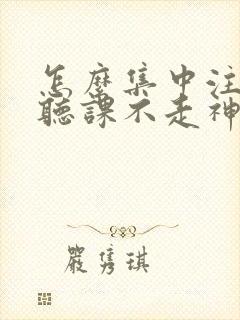 怎麼集中注
聽課不走神
嚴雋琪